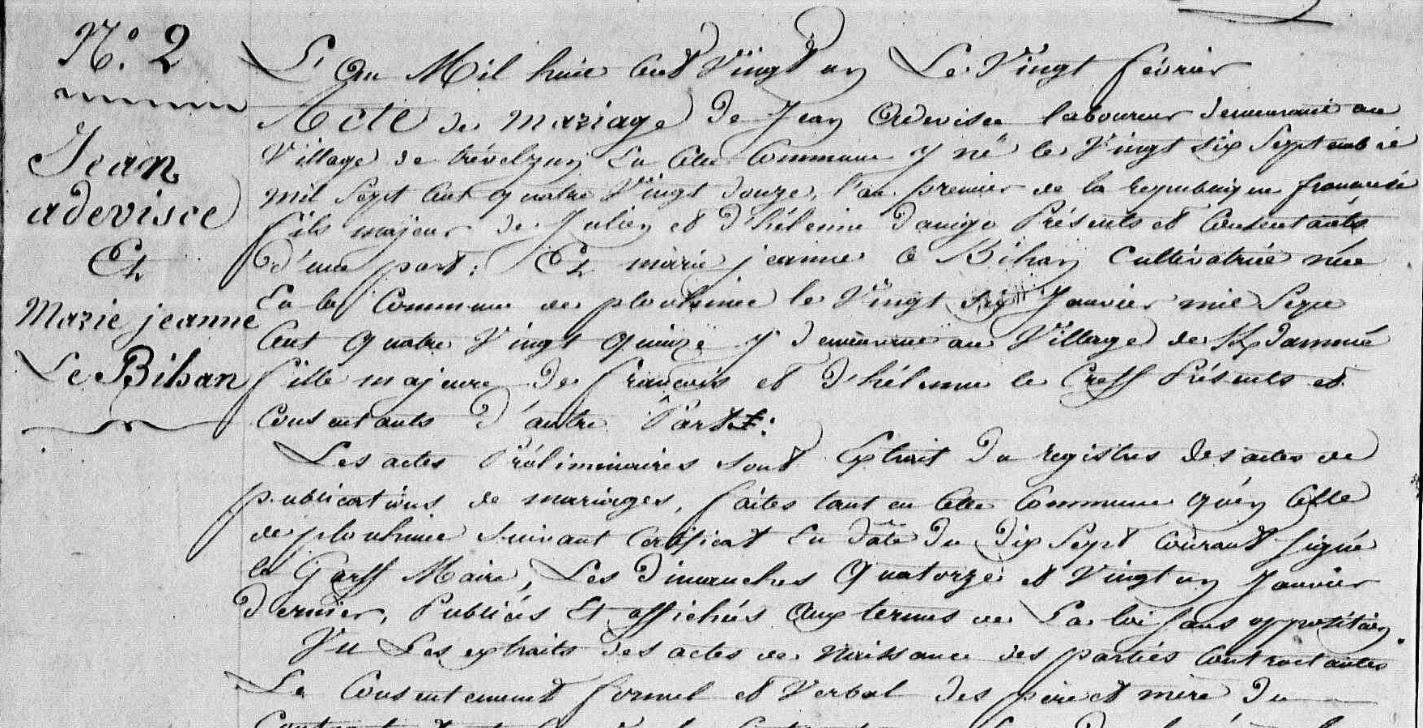 N.º 2
Jean
adevisce
Et
Marie jeanne
Le Bihan
L'an Mil huit cent Vingt un Le Vingt février
Acte de mariage de Jean Adevisce laboureur demeurant au
Village de trévelzun En Cette Commune y né le Vingt six Septembre
mil Sept Cent quatre Vingt douze, l'an premier de la république française
fils majeur de Julien et d'hélenne danigo Présents et Consentants
D'une part; Et marie jeanne le Bihan Cultivatrice née
En la Commune de plouhinec le Vingt Janvier mil Sept
Cent quatre Vingt quinze y demeurant au Village de
fille majeure de françois et d'hélenne le Creff Présents et
Consentants D'autre Part:
Les actes Préliminaires sont Extrait du registres des actes de
publications de mariages, faites tant en Cette Commune qu'en Celle
de plouhinec Suivant Certificat En date Du Dix Sept Courant Signé
le Gorff Maire, Les Dimanches Quatorze et Vingt un Janvier
Dernier, Publiés Et affichés aux termes de La loi sans opposition.
Vu Les extraits des actes de Naissance des parties Contractantes
Le Consentement formel et Verbal des père et mère du